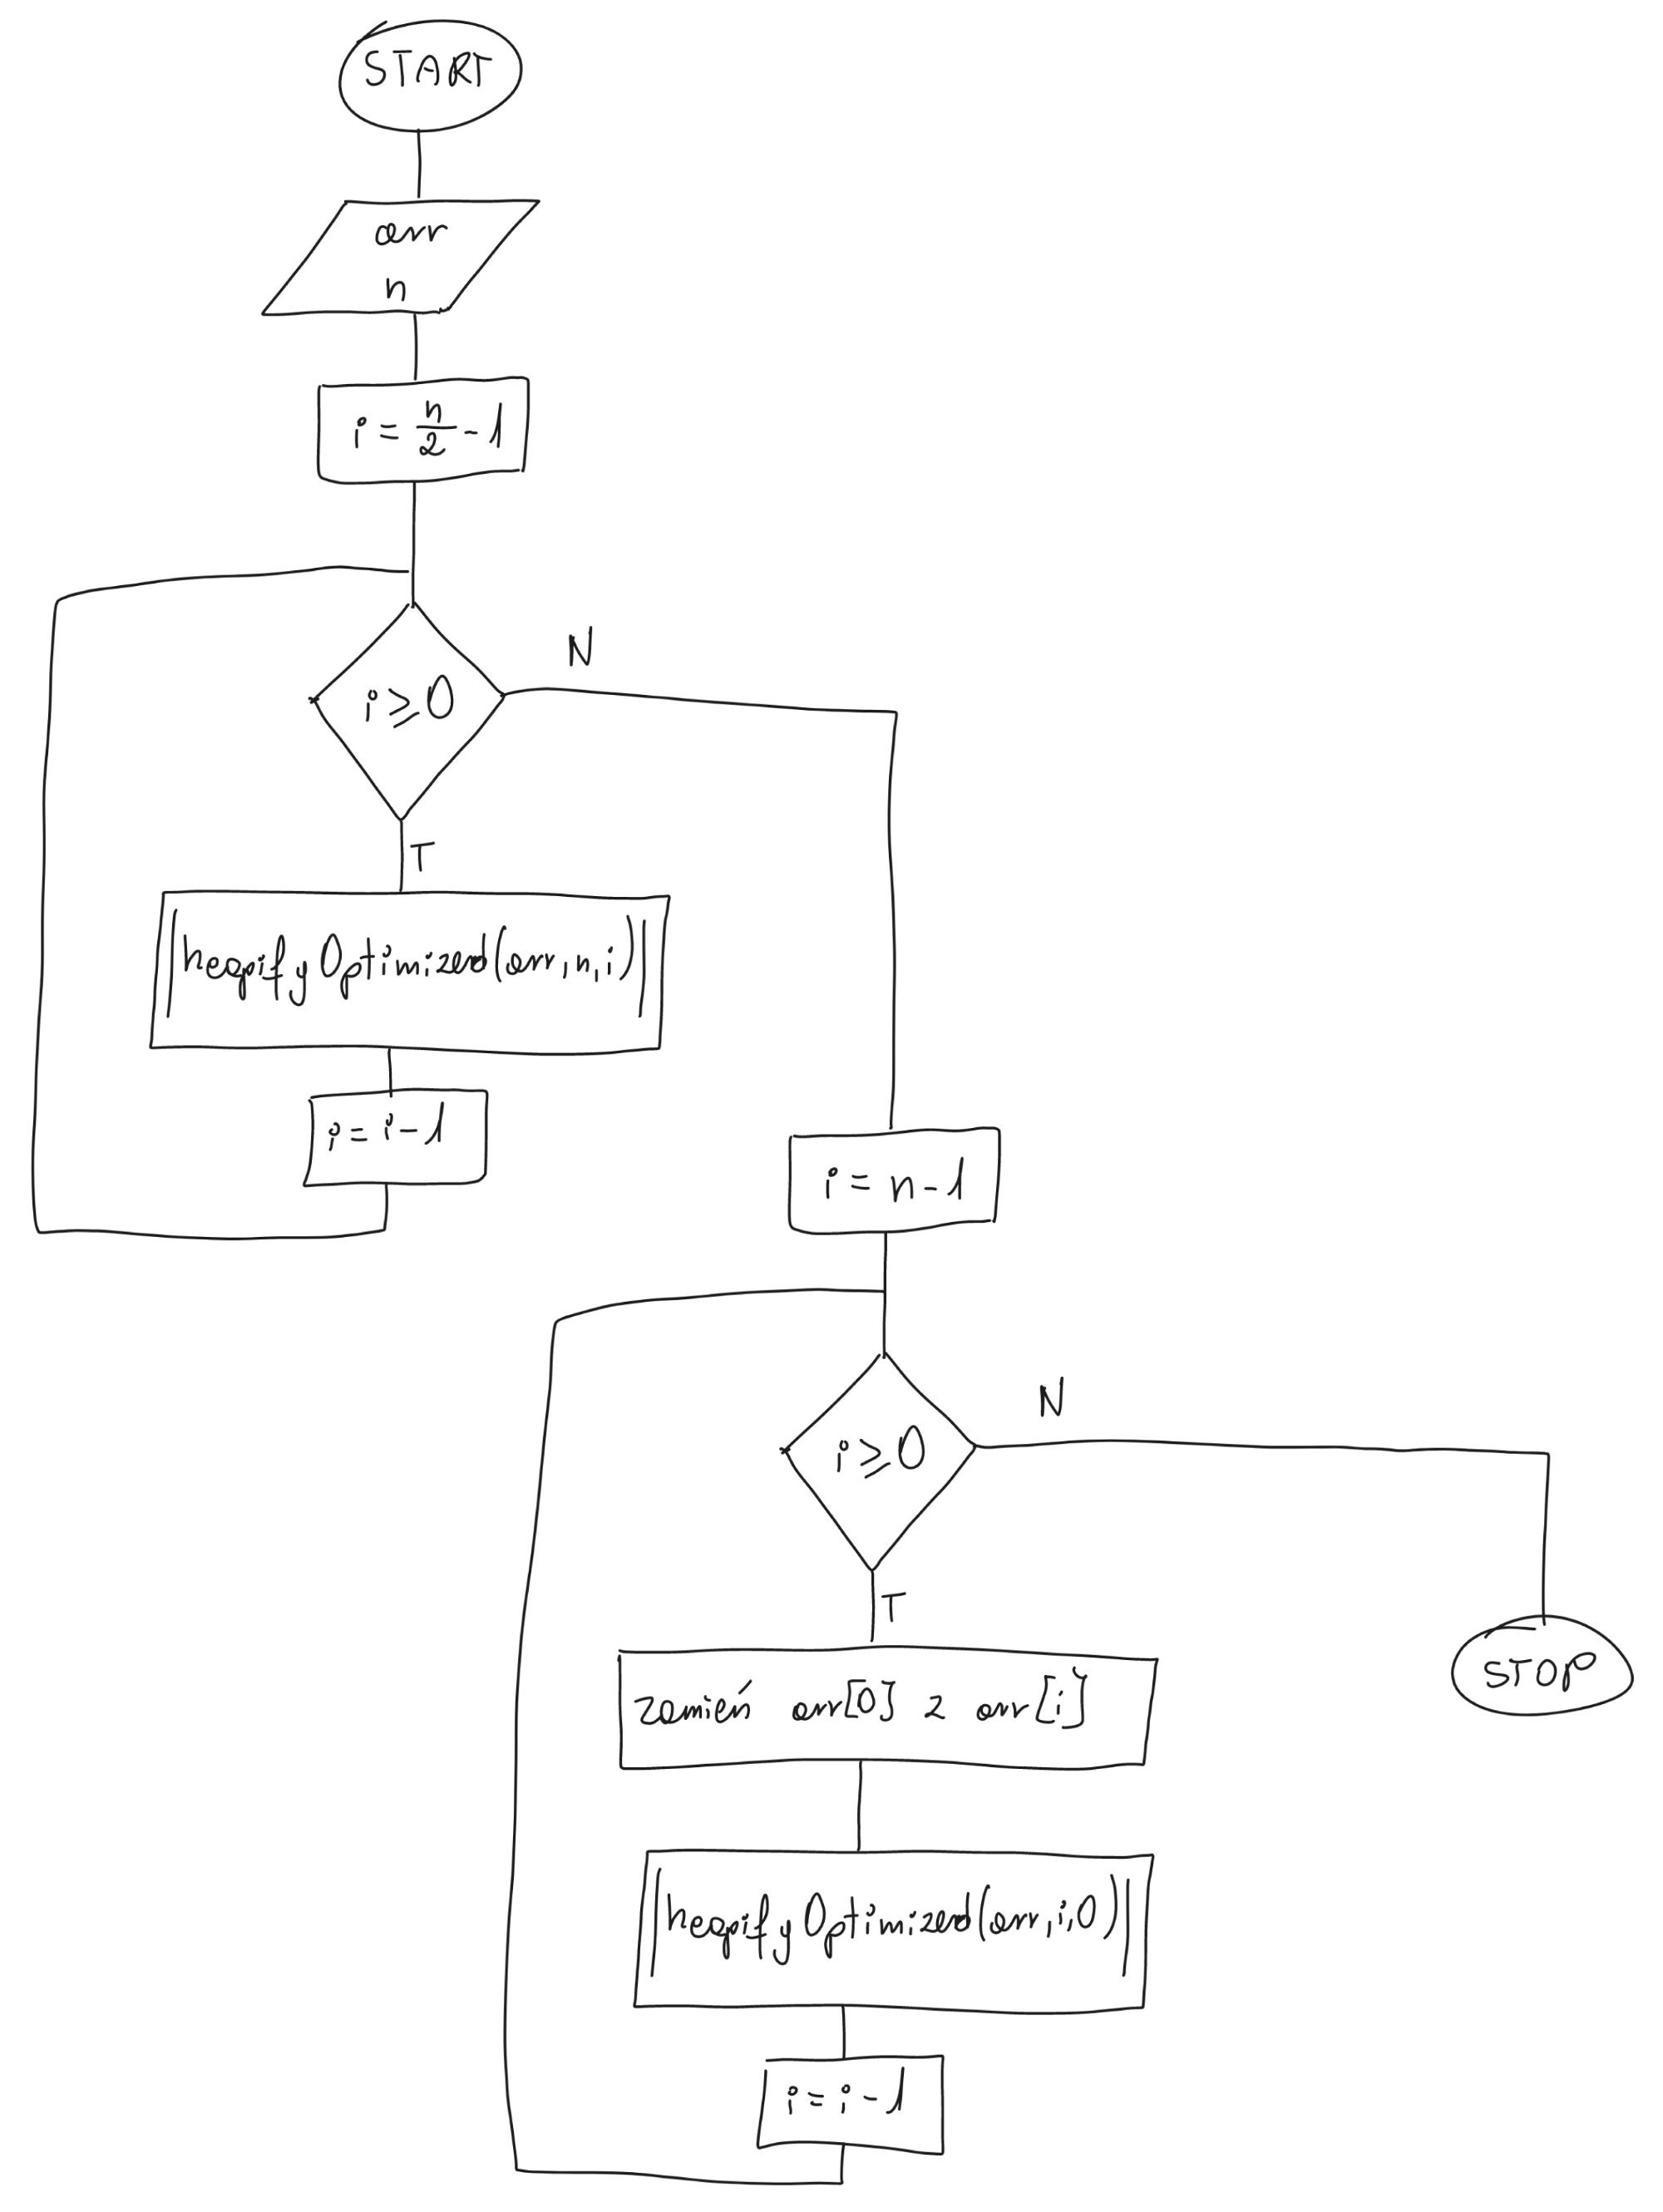 START
arr
n
i = n/2 - 1
i ≥ 0
N
T
heapifyOptimized(arr, n, i)
i = i - 1
i = n - 1
i ≥ 0
N
T
zamień arr[0] z arr[i]
STOP
heapifyOptimized(arr, i, 0)
i = i - 1